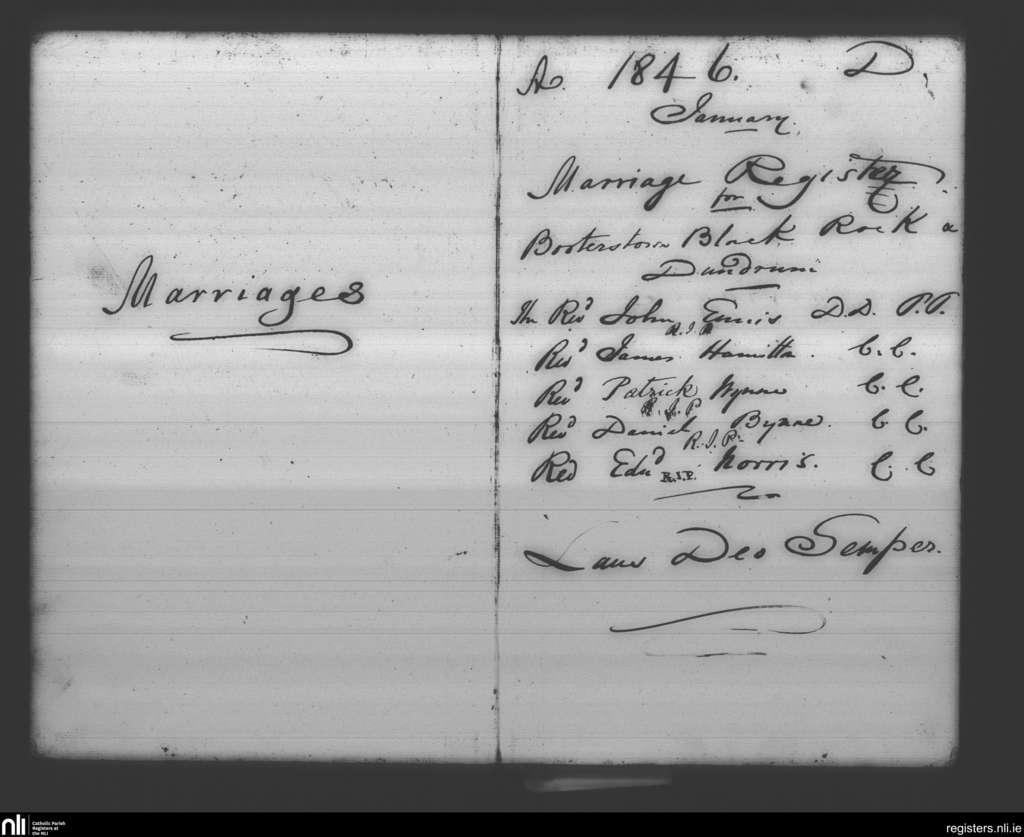 Marriages
A. 1846. D.
January.
Marriage Register
for
Booterstown Black Rock &
Dundrum
The Revd John Ennis D.D. P.P.
R.I.P.
Revd James Hamilton. C.C.
Revd Patrick Wynne C.C.
R.I.P
Revd Daniel Byrne. C C.
R.I.P.
Revd Edwd Norris. C.C
R.I.P.
Laus Deo Semper.
nli
Catholic Parish
Registers at
the NLI
registers.nli.ie